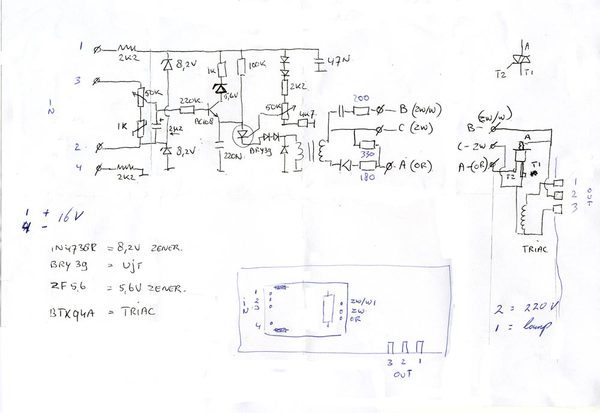 1
2K2
8,2V
1K
100K
47N
3
50K
5,6V
2K2
iN
220K
50K
4K7
1K
2K2
BC108
2
8,2V
220N
BRY39
4
2K2
200
B (ZW/W)
C (ZW)
330
A (OR)
180
A
T2 T1
(ZW/W)
B-
C-ZW
A
A-(OR)
T1
T2
1
2
3
OUT
TRIAC
1 + 16V
4 -
1N4738R = 8,2V ZENER.
BRY39 = UjT
ZF5,6 = 5,6V ZENER.
BTX94A = TRIAC
iN
1
2
3
4
ZW/W1
ZW
OR
3 2 1
OUT
2 = 220V
1 = lamp